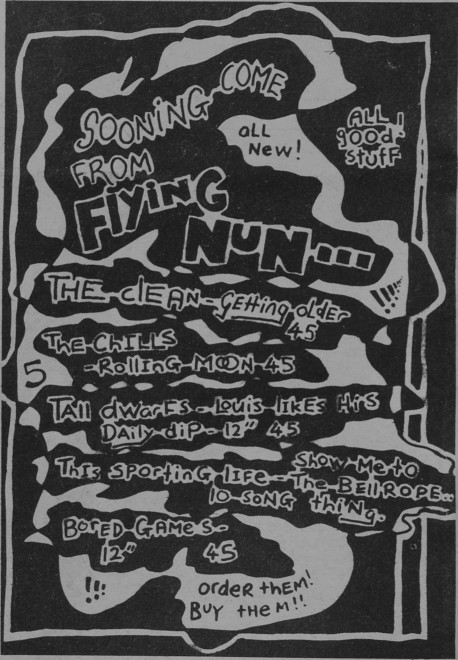 SOONING COME
ALL!
good!
stuff
all
New!
FROM
FlYiNG
NuN...
!!!!
THE clEAN - GETTing oldER
45
The CHILLS
- RolliNG MOON 45
5
TAll dWARFS - Louis liKEs HiS
DAily diP - 12" 45
This SPORTiNG liFE - SHOW-Me to
The BEllROPE..
10-SONG thiNg.
BORED GAMES -
12" 45
!!!
order thEM!
BUY THE M!!